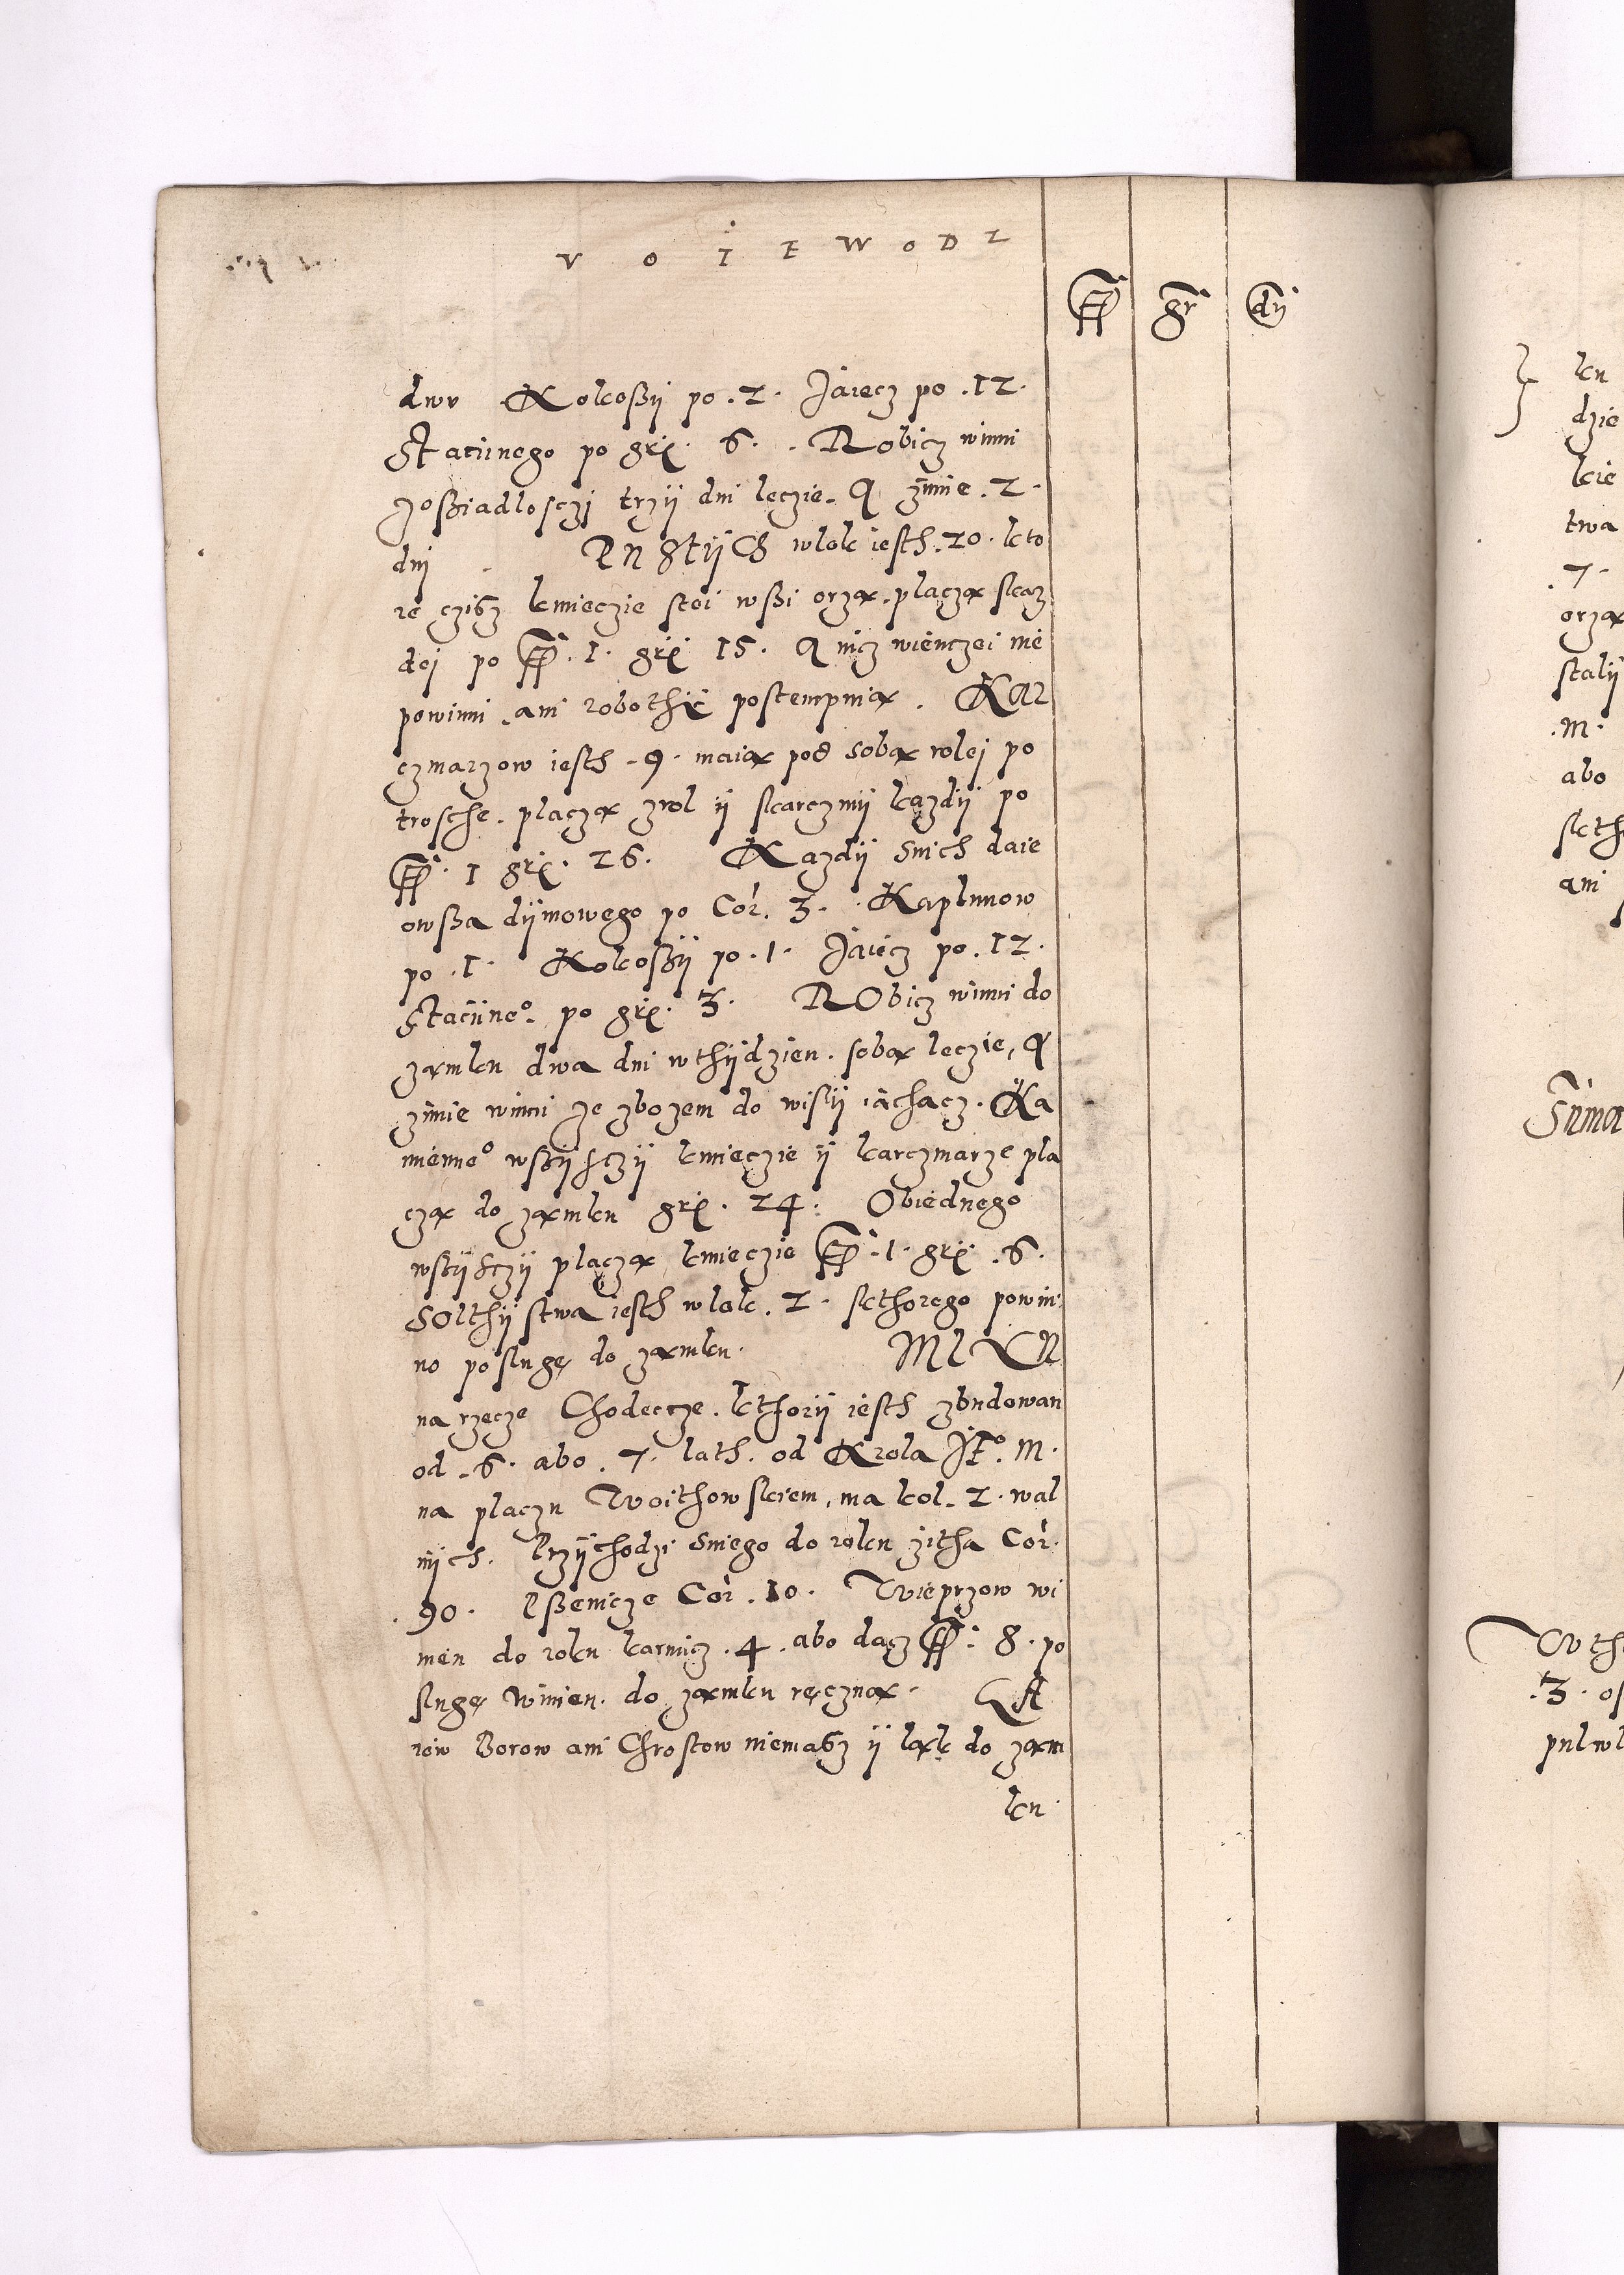 V O I E W O D Z
ff gr dn
dwv Kokoßÿ po . 2 . Jaiecz po . 12 .
Stacÿnego po grꝭ . 6 . Robicz winni
zoßiadlosczi trzÿ dni leczie . A zimie . 2 .
dnj PUSTYCH wlok iesth . 20 . kto
re czißz kmieczie stei wßi orzą . placzą skaz
dej po ff . 1 . grꝭ 15 . A nicz wienczei nie
powinni . ani robothÿ postempuią . KAR
czmarzow iesth . 9 . maią pod sobą rolej po
trosche . placzą zrol ÿ skarczmÿ kazdÿ po
ff . 1 grꝭ . 26 . Kazdÿ snich daie
owßa dÿmowego po Cor . 3 . Kaplunow
po . 1 . Kokoßÿ po . 1 . Jaiecz po . 12 .
Stacÿneº . po grꝭ . 3 . RObicz winni do
zamku dwa dni wthÿdzien . sobą leczie , A
zimie winni ze zbozem do wislÿ iachacz . Ka
mienneº wßÿsczÿ kmieczie ÿ karczmarze pla
czą do zamku grꝭ . 24 . Obiednego
wßÿsczÿ placzą kmieczie ff . 1 . grꝭ . 6 .
SOlthÿstwa iesth wlok . 2 . skthorego powin
no poslugę do zamku . MlYN
na rzecze Chodeczce . kthorÿ iesth zbudowan
od . 6 . abo . 7 . lath . od Krola JEº . M .
na placzu Woithowskiem , ma kol . 2 . wal
nÿch . Przÿchodzi sniego do roku zitha Cor .
90 . Pßenicze Cor . 10 . Wieprzow wi
nien do roku karmicz . 4 . abo dacz ff . 8 . po
slugę winien . do zamku ręczną . LA
sow Borow ani Chrostow niemaßz ÿ ląk do zam
ku .
ku
dzie
kie
twa
. 7 .
orzą
stalÿ
. M .
abo
skth
ani
Summa
Wth
. 3 . os
pulwl